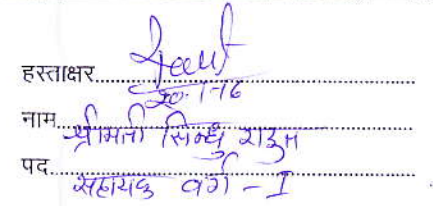 हस्ताक्षर
20-1-16
नाम श्रीमती सिन्धु राउत
पद सहायक वर्ग - I